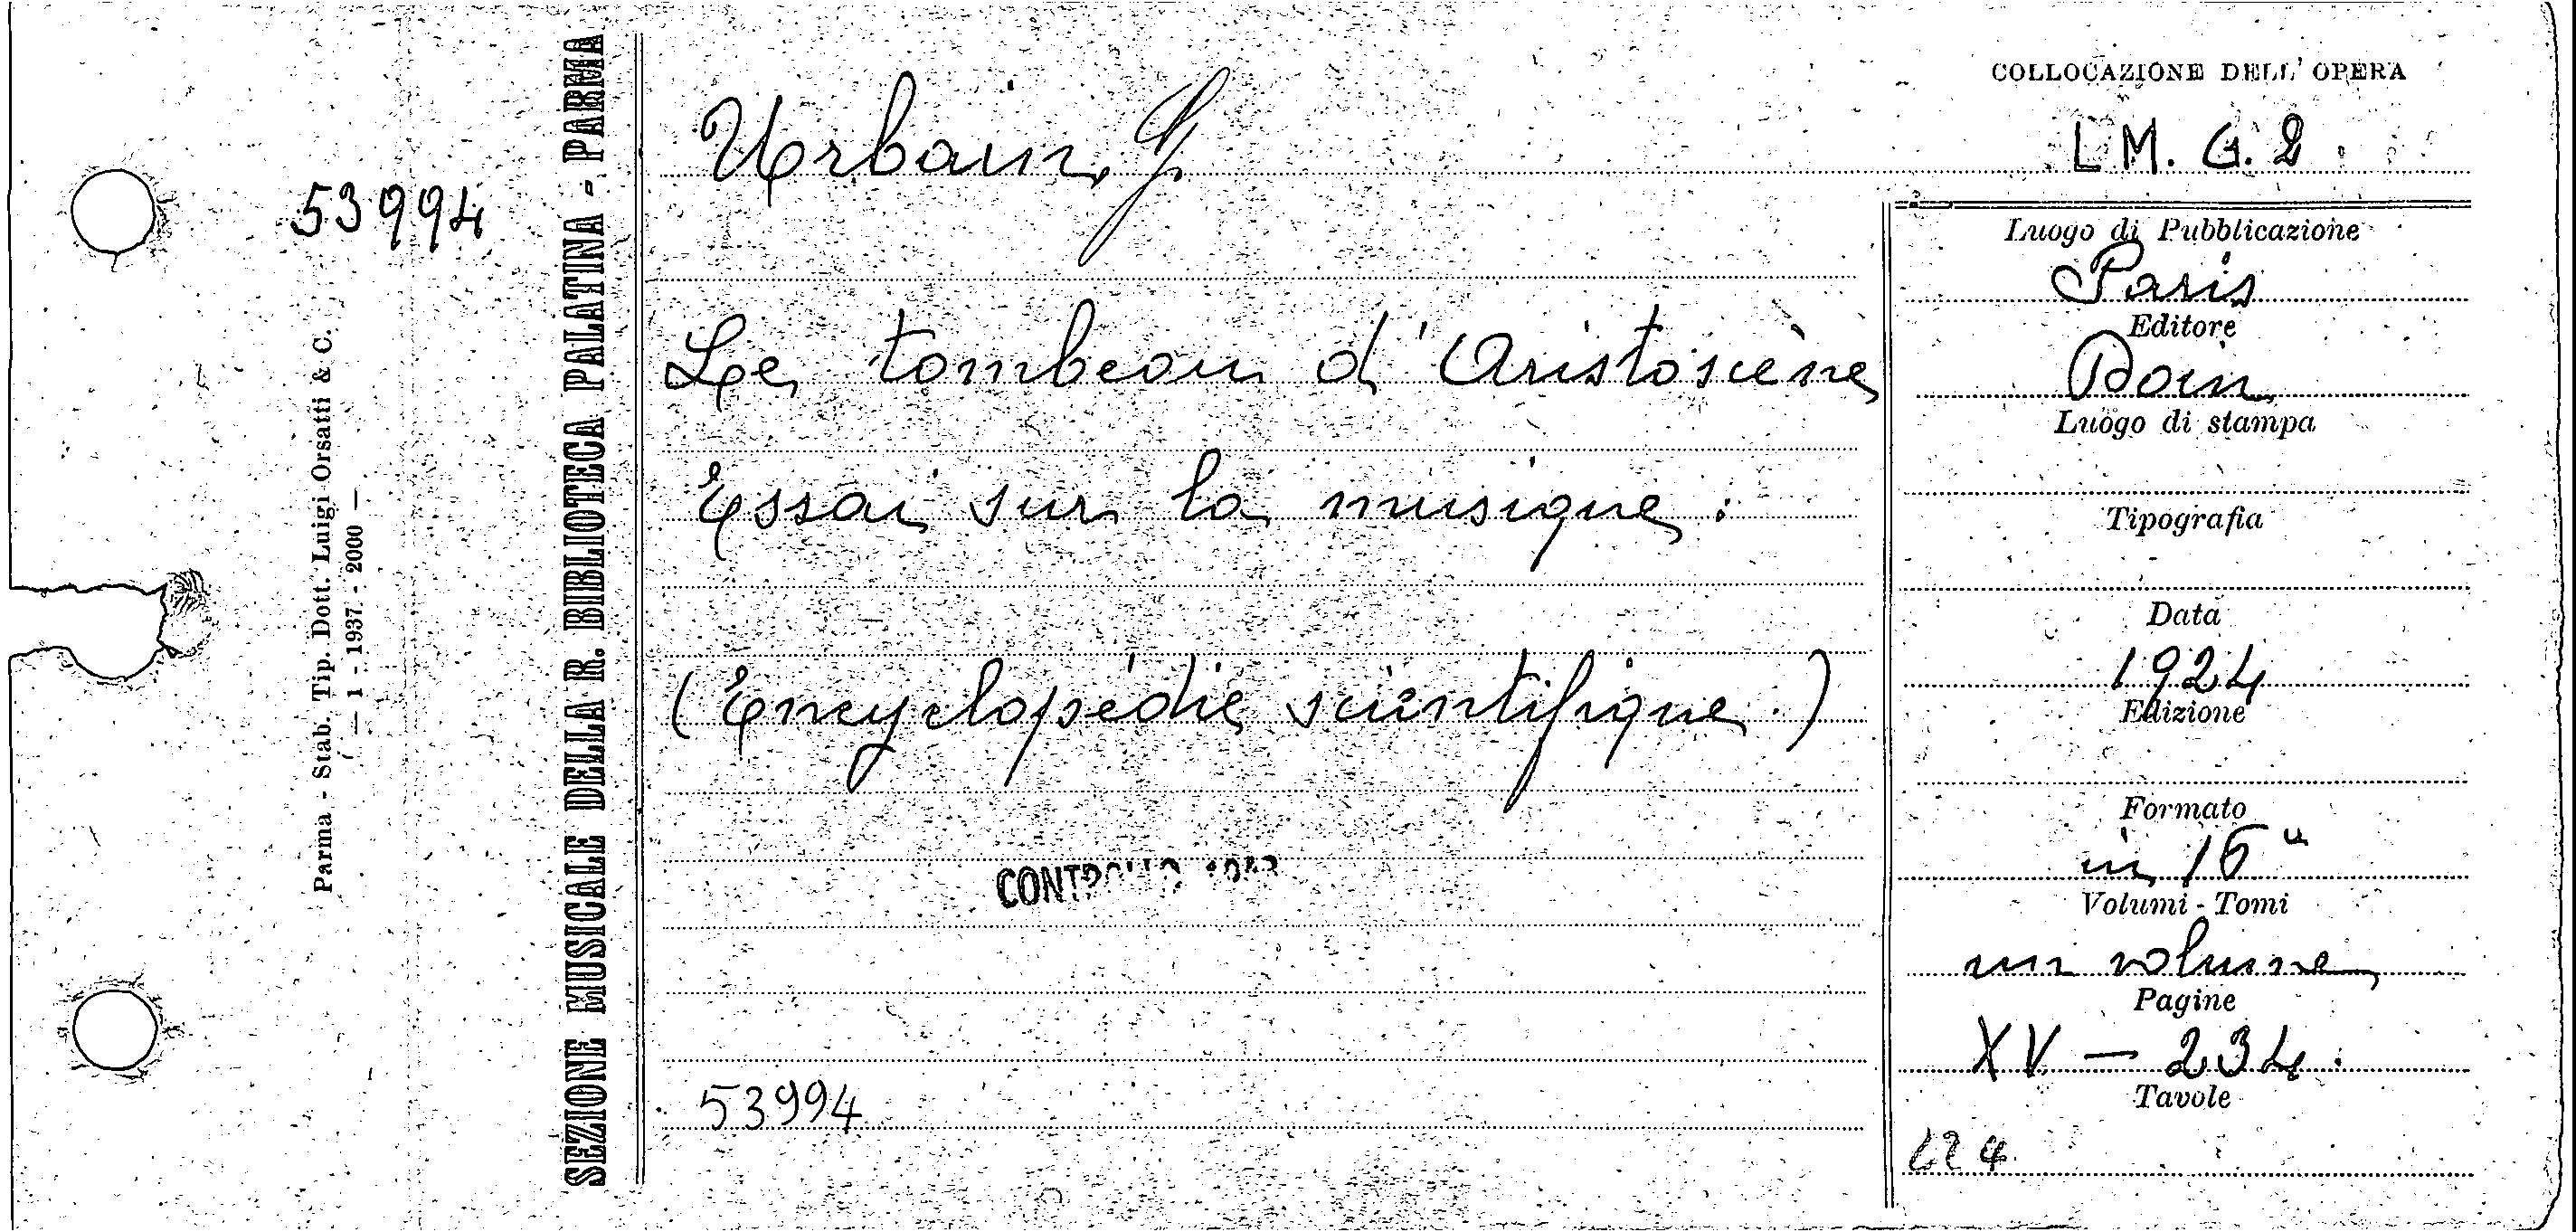 COLLOCAZIONE DELL' OPERA
L M. G. 2.
Urbain, G.
53994
Luogo di Pubblicazione
Paris
Editore
Doin
Le tombeau d'Aristoscène
Luogo di stampa
Essai sur la musique.
Tipografia
Data
1924
(Encyclopédie scientifique.)
Edizione
Formato
in 16°
CONTROLLO
Volumi - Tomi
un volume
Pagine
XV — 234.
53994
Tavole
SEZIONE MUSICALE DELLA R. BIBLIOTECA PALATINA - PARMA
Parma - Stab. Tip. Dott. Luigi Orsatti & C.
— 1 - 1937 - 2000 —